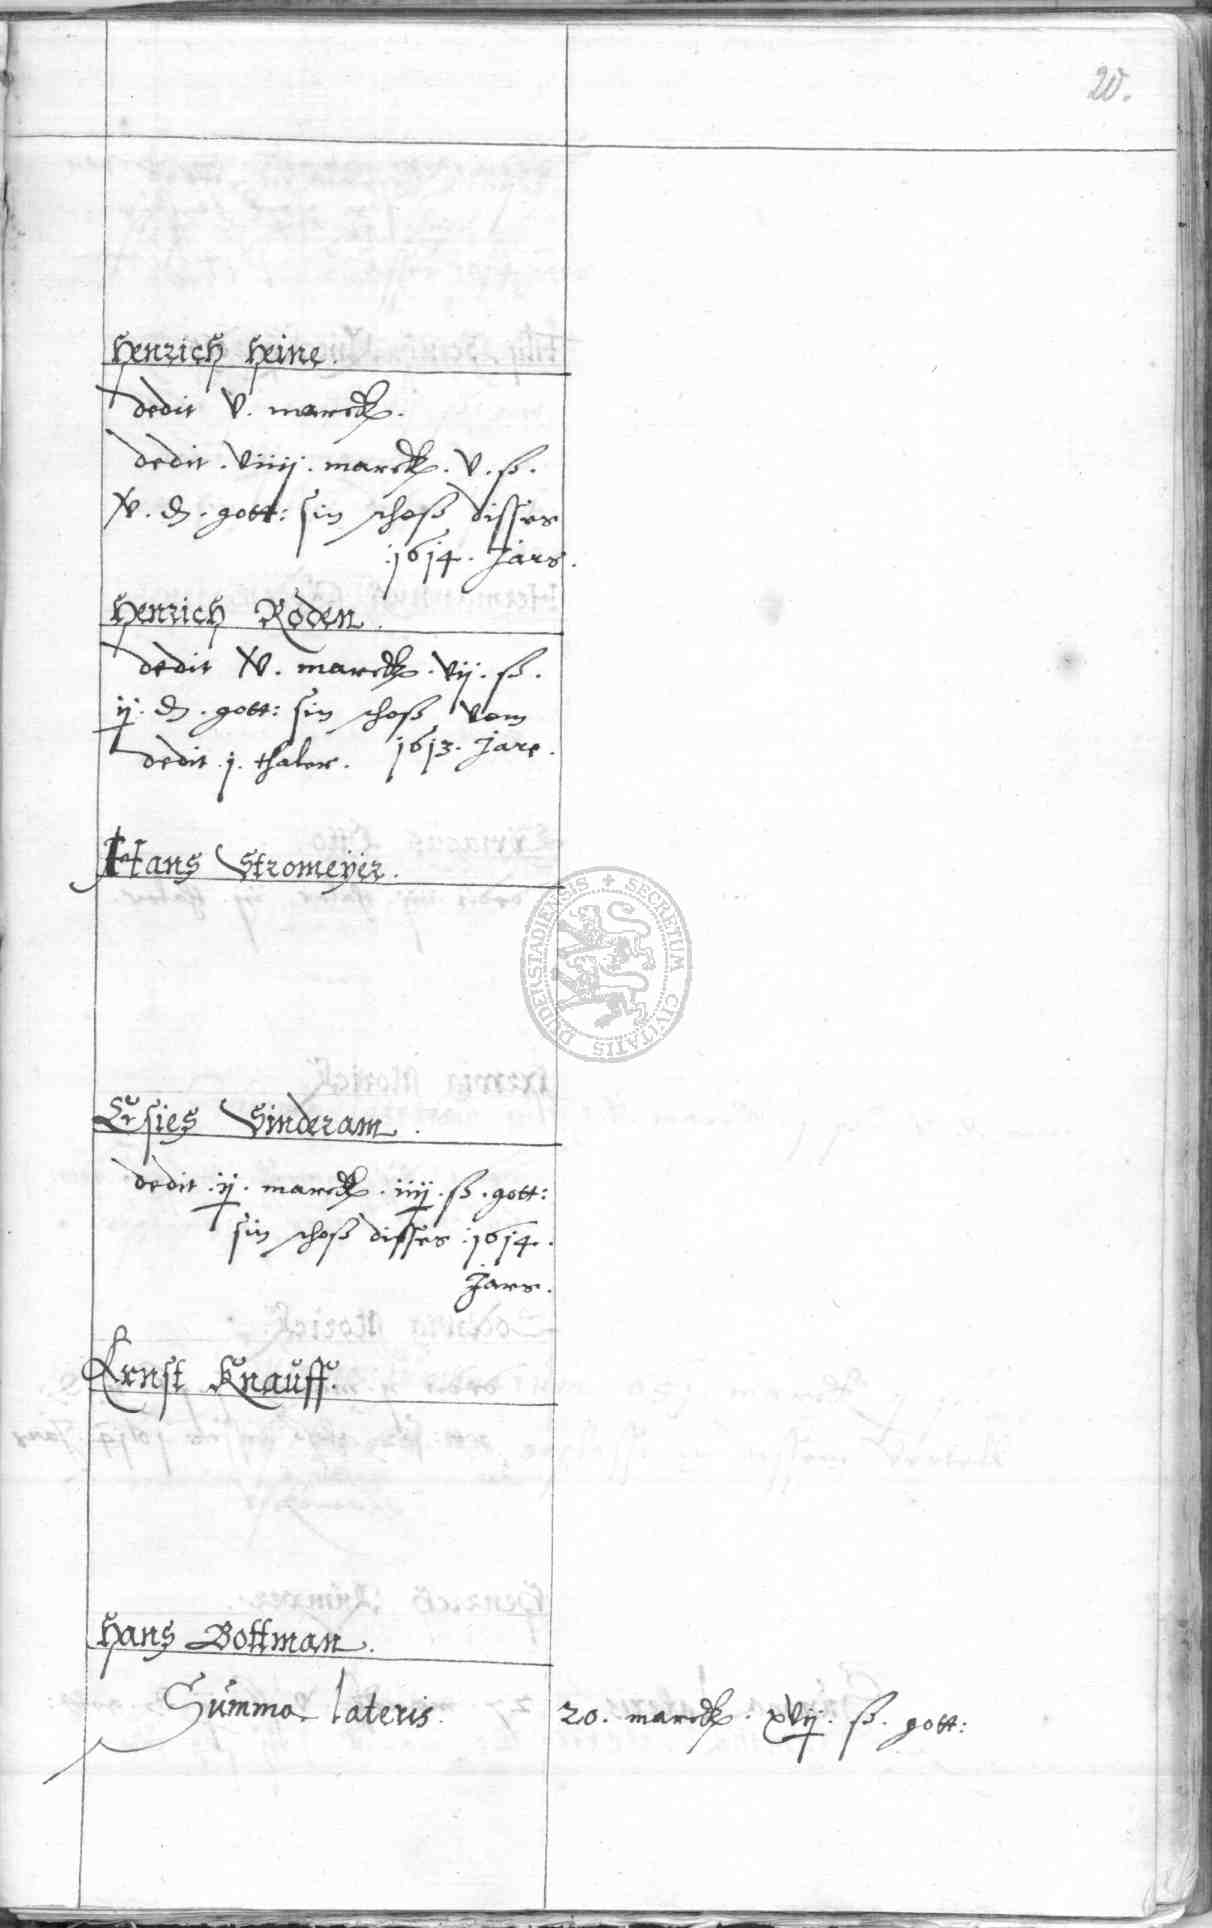 20.
Henrich Heine.
dedit v. marck.
dedit . viiij . marck . v . ß .
xv . d . gott: sin schoß disses
.1614. Jars.
Henrich Roden.
dedit xv. marck . vij . ß .
ij . d . gott: sin schoß vom
1613. Jare.
dedit . j . thaler.
Hans Stromeyer.
Esies Sinderam.
dedit . ij . marck . iiij . ß . gott:
sin schoß disses .1614.
Jars.
Ernst Knauff.
Hans Bottman.
Summa lateris. 20. marck . xvij . ß . gott:
SECRETUM CIVITATIS DUDERSTADIENSIS